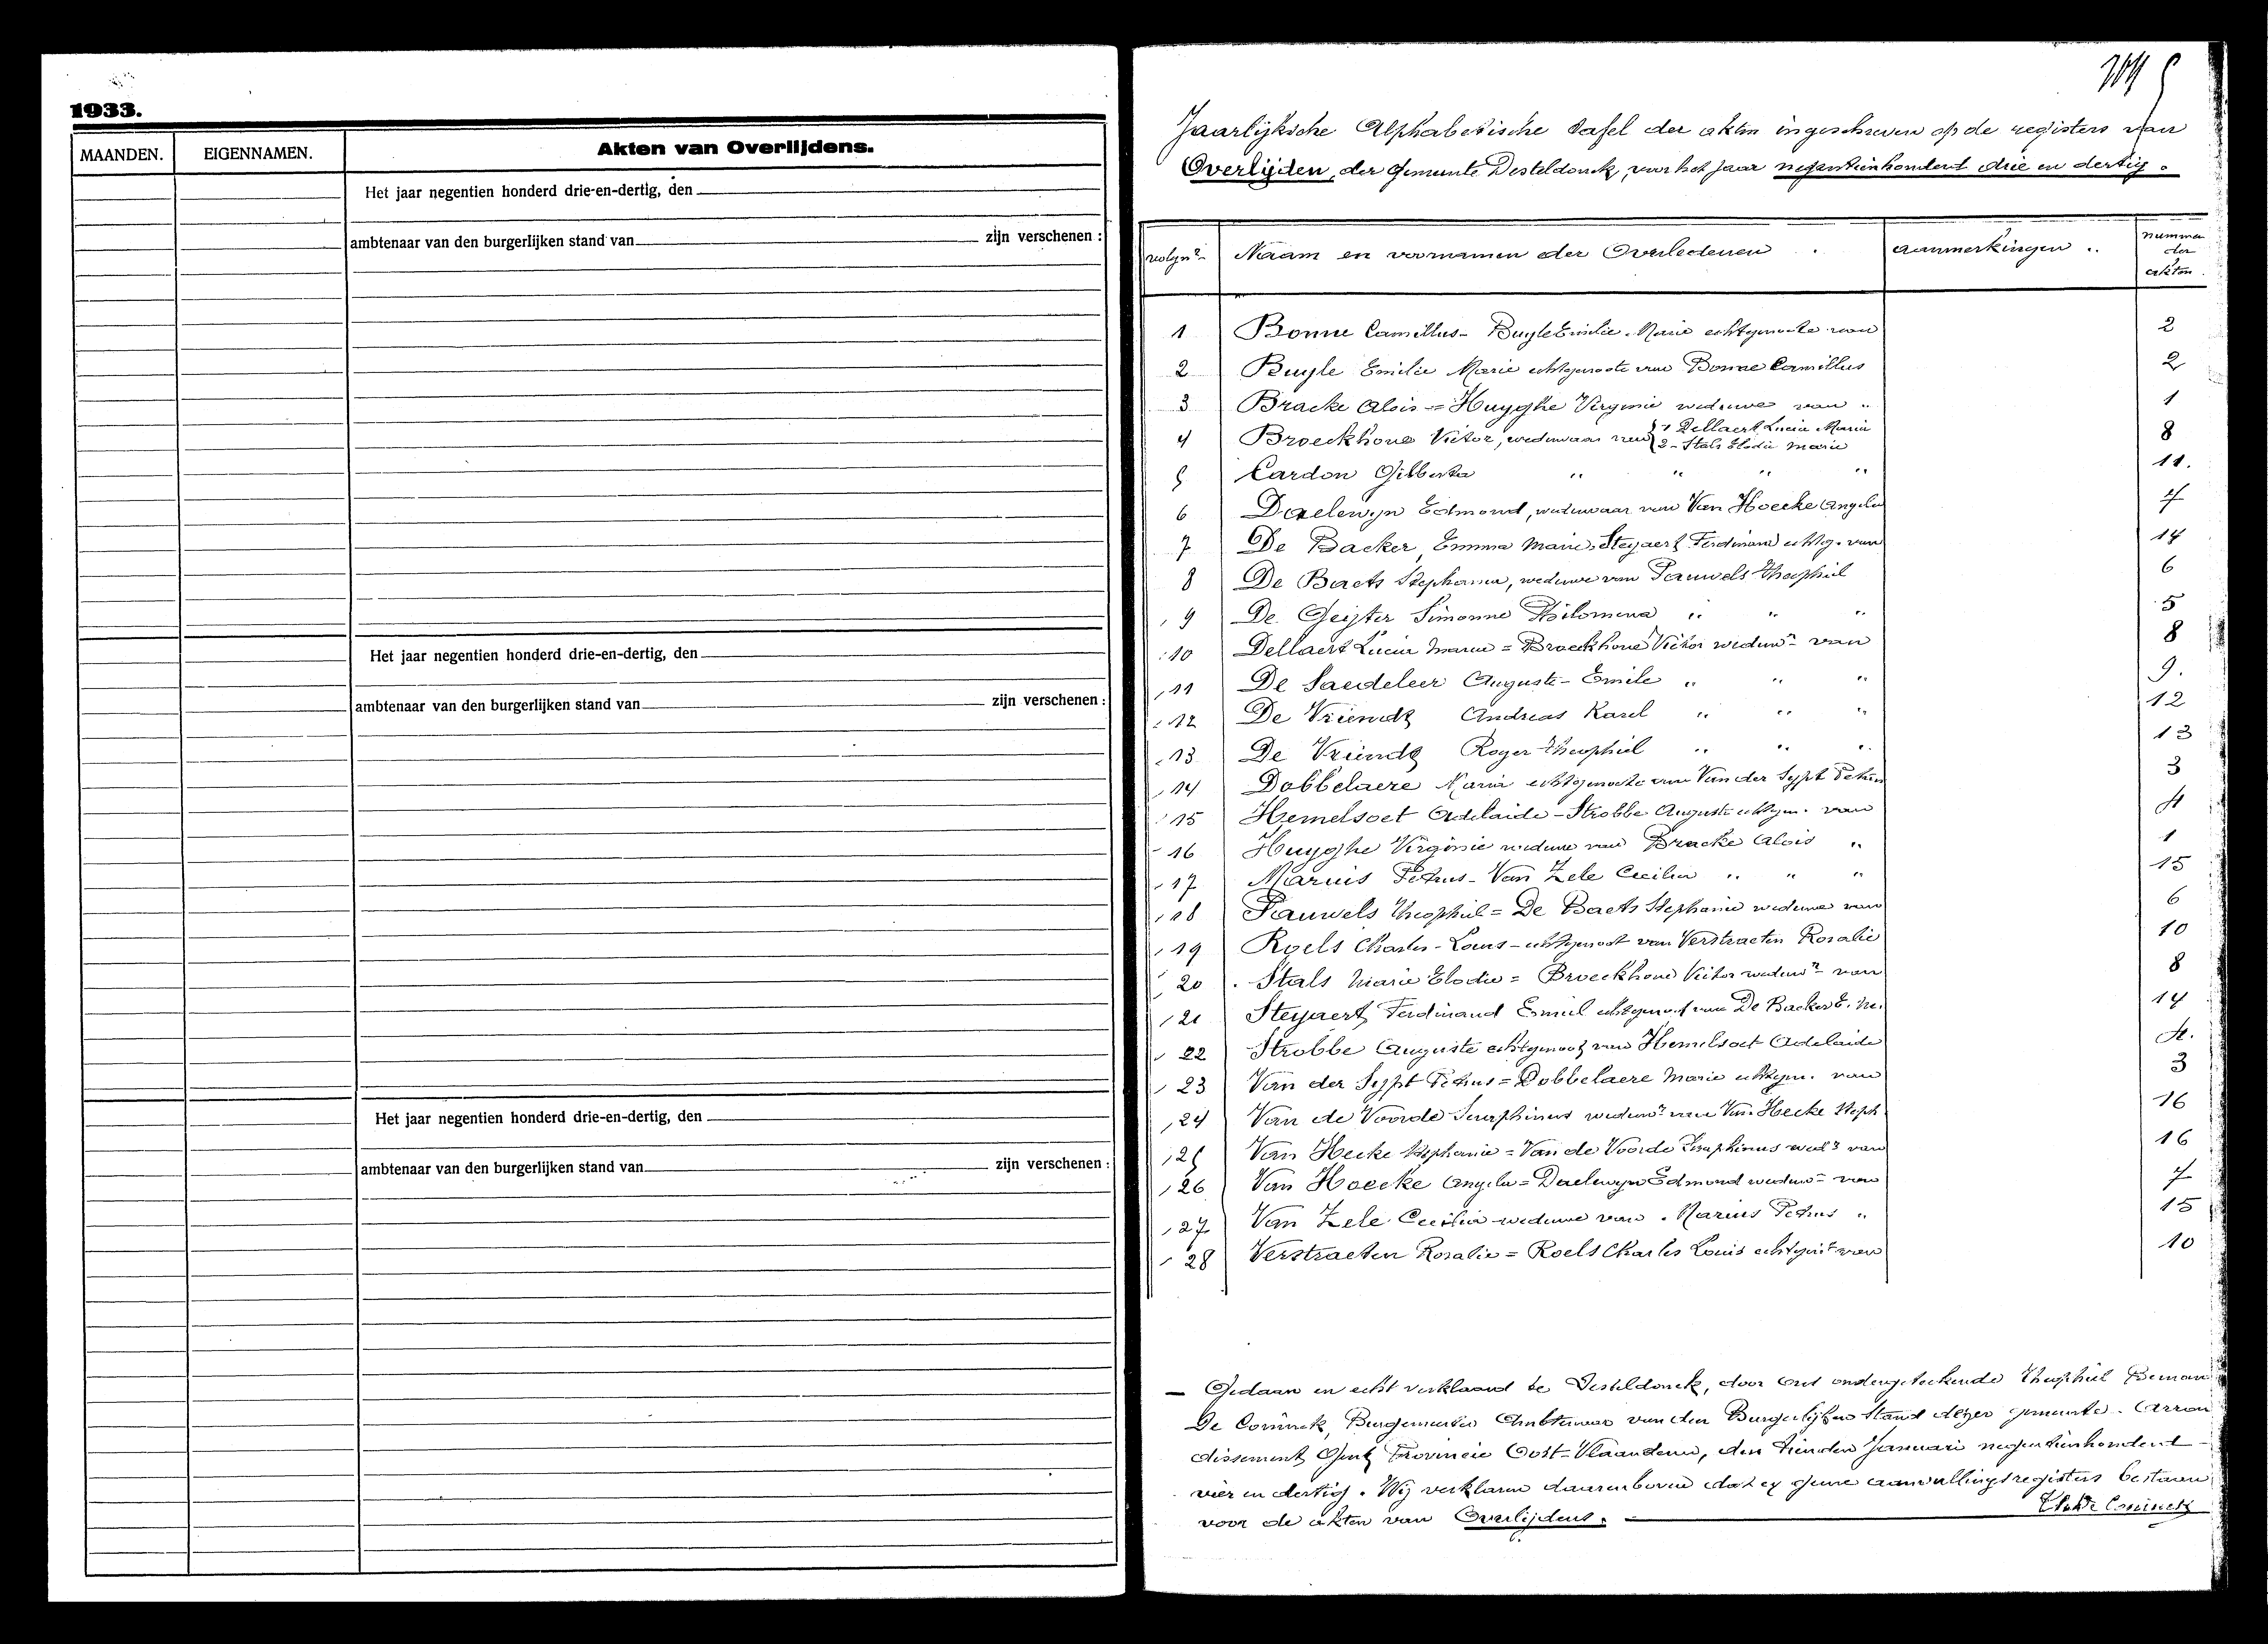 1933.
MAANDEN. EIGENNAMEN. Akten van Overlijdens.
Het jaar negentien honderd drie-en-dertig, den
ambtenaar van den burgerlijken stand van zijn verschenen :
Het jaar negentien honderd drie-en-dertig, den
ambtenaar van den burgerlijken stand van zijn verschenen :
Het jaar negentien honderd drie-en-dertig, den
ambtenaar van den burgerlijken stand van zijn verschenen :
Jaarlijksche Alphabetische tafel der akten ingeschreven op de registers van
Overlijden, der gemeente Desteldonck, voor het jaar negentienhonderd drie en dertig.
volgnr Naam en voornamen der Overledenen aanmerkingen nummer der akten
1 Bonne Camillus - Buyle Emilie Marie echtgenoote van 2
2 Buyle Emilie Marie echtgenoote van Bonne Camillus 2
3 Bracke Alois = Huyghe Virginie weduwe van " 1
4 Broeckhove Victor, weduwaar van 1 Dellaert Lucia Maria 2 - Stals Elodie Marie 8
5 Cardon Gilberta " " " " 11.
6 Daelewyn Edmond, weduwaar van Van Hoecke Angela 7
7 De Backer Emma Marie - Steyaert Ferdinand echtg. van 14
8 De Baets Stephania, weduwe van Pauwels Theophiel 6
9 De Geyter Simonne Philomena " " " 5
10 Dellaert Lucia Maria = Broeckhove Victor weduwr van 8
11 De Saedeleer Auguste - Emile " " " 9.
12 De Vriendt Andreas Karel " " " 12
13 De Vriendt Roger Theophiel " " " 13
14 Dobbelaere Maria echtgenoote van Van der Sypt Petrus 3
15 Hemelsoet Adelaide - Strobbe Auguste echtgen. van 4
16 Huyghe Virginie weduwe van Bracke Alois " 1
17 Marius Petrus - Van Zele Cecilia " " " 15
18 Pauwels Theophiel = De Baets Stephanie weduwe van 6
19 Roels Charles - Louis - echtgenoot van Verstraeten Rosalie 10
20 Stals Marie Elodie = Broeckhove Victor weduwr van 8
21 Steyaert Ferdinand Emiel echtgenoot van De Backer E. M. 14
22 Strobbe Auguste echtgenoot van Hemelsoet Adelaide 4.
23 Van der Sypt Petrus = Dobbelaere Marie echtgen. van 3
24 Van de Voorde Seraphinus weduwr van Van Hecke Steph. 16
25 Van Hecke Stephanie = Van de Voorde Seraphinus wedr van 16
26 Van Hoecke Angela = Daelewyn Edmond weduwr van 7
27 Van Zele Cecilia weduwe van Marius Petrus " 15
28 Verstraeten Rosalie = Roels Charles Louis echtgent van 10
- Gedaan en echt verklaard te Desteldonck, door ons ondergeteekende Theophiel
De Coninck, Burgemeester Ambtenaar van den Burgerlijken Stand dezer gemeente. Arron
dissement Gent Provincie Oost-Vlaanderen, den tienden Januari negentienhonderd
vier en dertig. Wij verklaren daarenboven dat er geene aanvullingsregisters bestaan
voor de akten van Overlijdens.
De Coninck